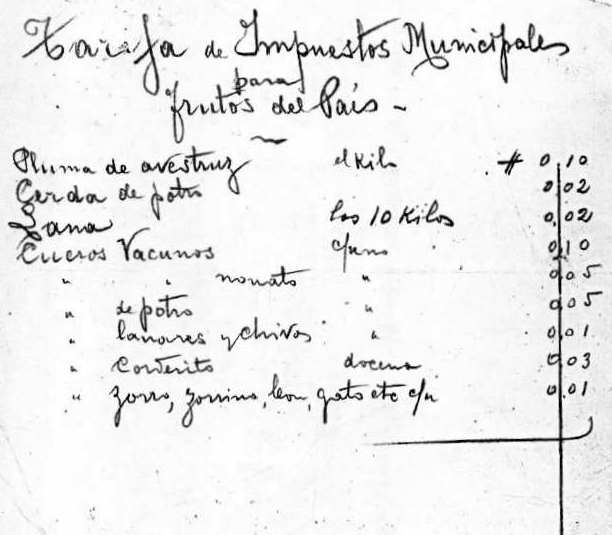 Tarifa de Impuestos Municipales
para
frutos del País -
Pluma de avestruz el Kilo # 0,10
Cerda de potro 0,02
Lana los 10 Kilos 0,02
Cueros Vacunos c/uno 0,10
" " nonato " 0,05
" de potro " 0,05
" lanares y chivos " 0,01
" Corderito docena 0,03
" zorro, zorrino, leon, gato etc c/u 0,01